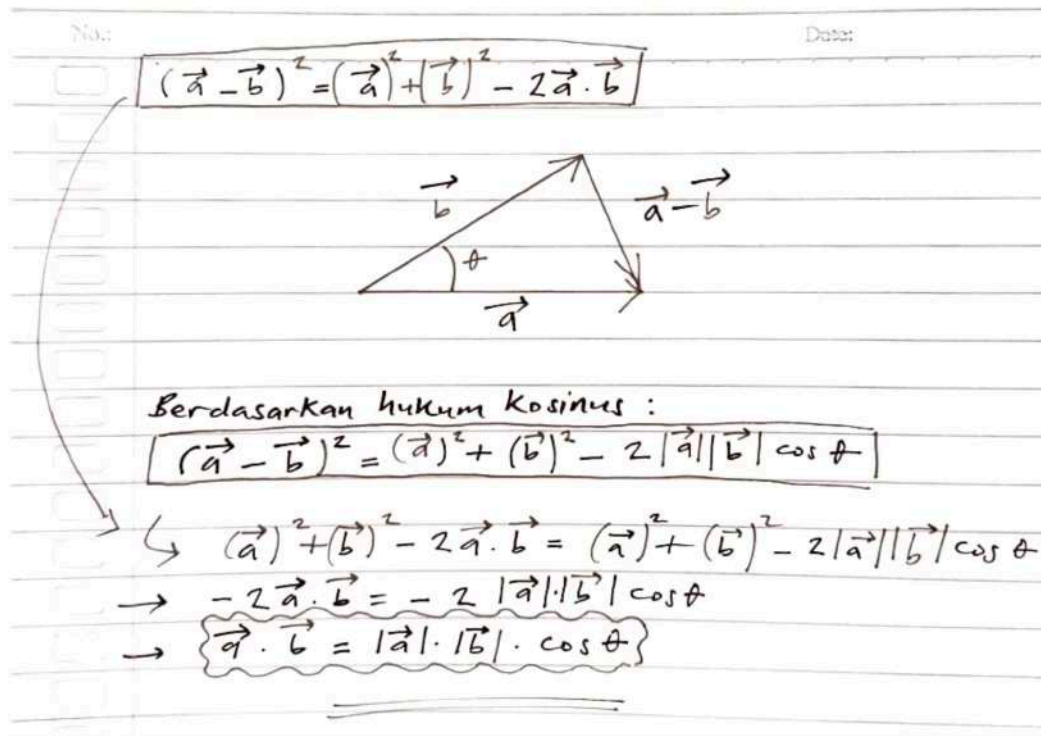 No.: Date:
(a⃗ − b⃗)² = (a⃗)² + (b⃗)² − 2a⃗ . b⃗
b⃗
a⃗ − b⃗
θ
a⃗
Berdasarkan hukum kosinus :
(a⃗ − b⃗)² = (a⃗)² + (b⃗)² − 2 |a⃗||b⃗| cos θ
↳ (a⃗)² + (b⃗)² − 2a⃗ . b⃗ = (a⃗)² + (b⃗)² − 2|a⃗||b⃗| cos θ
→ − 2a⃗ . b⃗ = − 2 |a⃗|.|b⃗| cos θ
→ a⃗ . b⃗ = |a⃗| . |b⃗| . cos θ